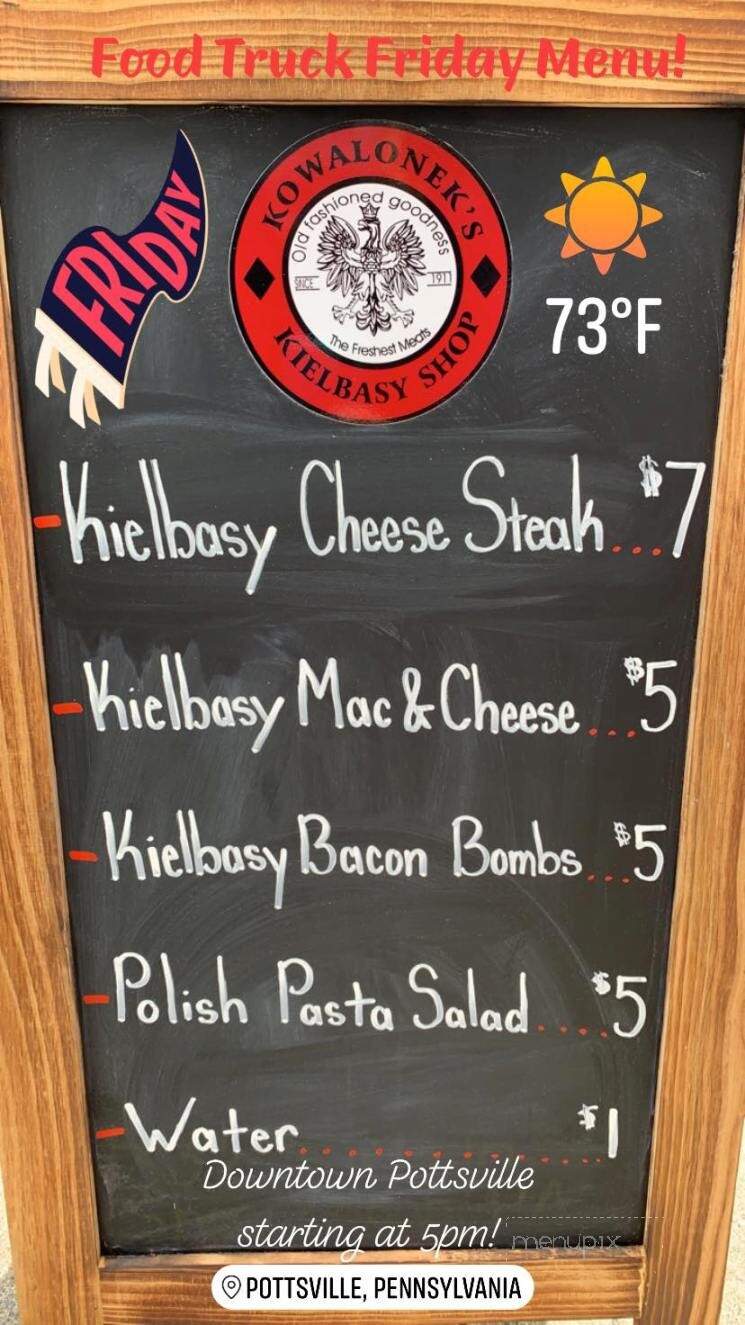 Food Truck Friday Menu!
FRIDAY
KOWALONEK'S
Old fashioned goodness
SINCE 1911
The Freshest Meats
KIELBASY SHOP
73°F
-Kielbasy Cheese Steak...$7
-Kielbasy Mac & Cheese...$5
-Kielbasy Bacon Bombs...$5
-Polish Pasta Salad....$5
-Water..............$1
Downtown Pottsville
starting at 5pm!
menupix
POTTSVILLE, PENNSYLVANIA